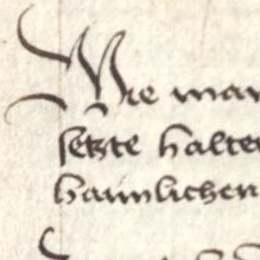 Wie man
setzte halte
haimlichen